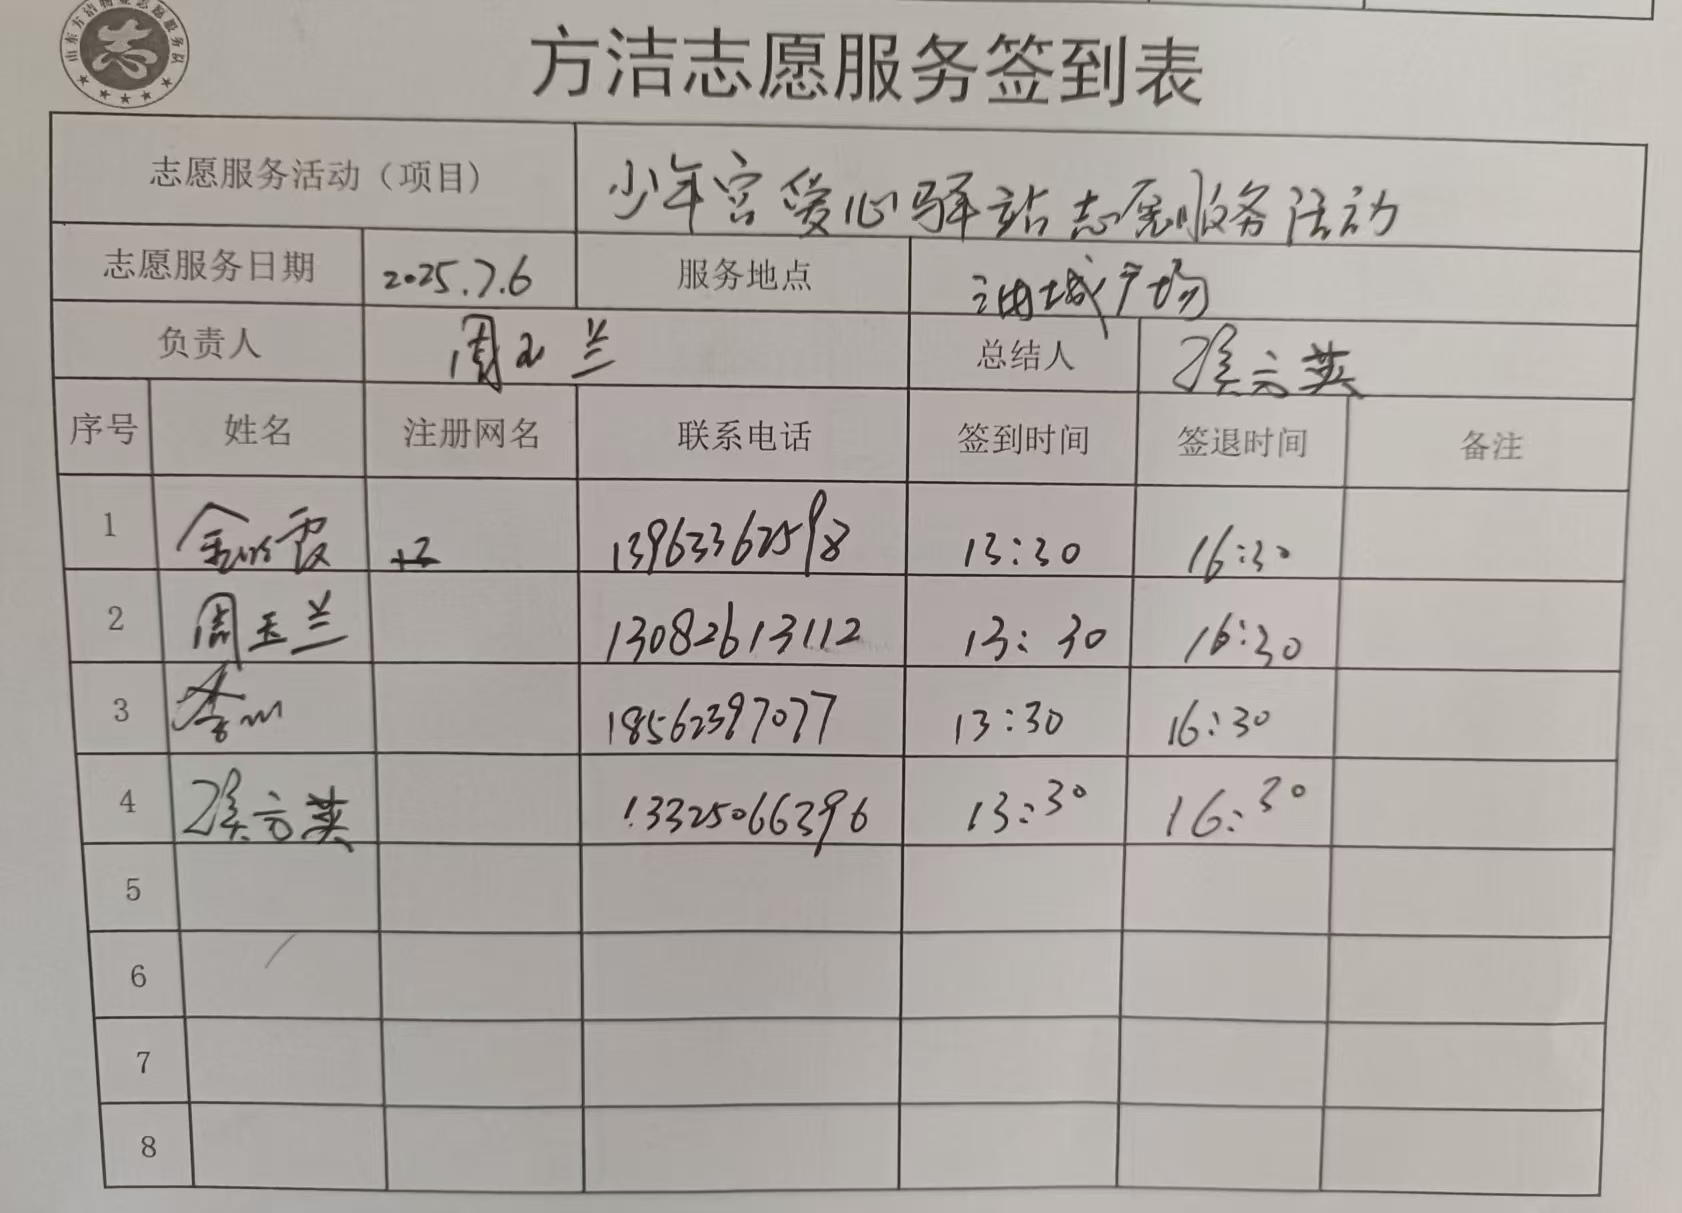 山东方洁物业志愿服务队
志
方洁志愿服务签到表
志愿服务活动（项目） 少年宫爱心驿站志愿服务活动
志愿服务日期 2025.7.6 服务地点 油城广场
负责人 周玉兰 总结人 云英
序号 姓名 注册网名 联系电话 签到时间 签退时间 备注
1 霞 13963362598 13:30 16:30
2 周玉兰 13082613112 13:30 16:30
3 李 18562397077 13:30 16:30
4 云英 13325066396 13:30 16:30
5
6
7
8